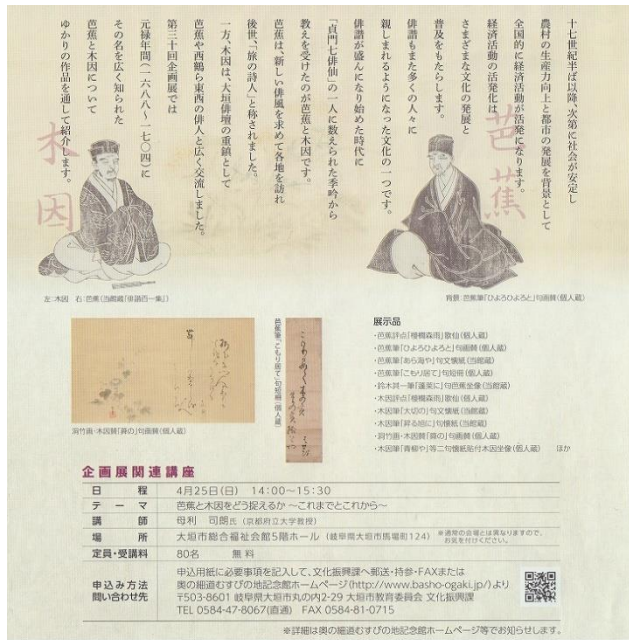 十七世紀半ば以降、次第に社会が安定し
農村の生産力向上と都市の発展を背景として
全国的に経済活動が活発になります。
経済活動の活発化は、
さまざまな文化の発展と
普及をもたらします。
俳諧もまた多くの人々に
親しまれるようになった文化の一つです。
俳諧が盛んになり始めた時代に
「貞門七俳仙」の一人に数えられた季吟から
教えを受けたのが芭蕉と木因です。
芭蕉は、新しい俳風を求めて各地を訪れ
後世、「旅の詩人」と称されました。
一方、木因は、大垣俳壇の重鎮として
芭蕉や西鶴ら東西の俳人と広く交流しました。
第三十回企画展では
元禄年間(一六八八~一七〇四)に
その名を広く知られた
芭蕉と木因について
ゆかりの作品を通して紹介します。
芭蕉
木因
左:木因 右:芭蕉(当館蔵『俳諧百一集』)
背景:芭蕉筆「ひよろひよろと」句画賛(個人蔵)
芭蕉筆「こもり居て」句短冊(個人蔵)
洞竹画・木因賛「葵の」句画賛(個人蔵)
展示品
・芭蕉評点「欅欄森雨」歌仙(個人蔵)
・芭蕉筆「ひよろひよろと」句画賛(個人蔵)
・芭蕉筆「あら海や」句文懐紙(当館蔵)
・芭蕉筆「こもり居て」句短冊(個人蔵)
・鈴木其一筆「蓬莱に」句芭蕉坐像(当館蔵)
・木因評点「欅欄森雨」歌仙(個人蔵)
・木因筆「大切の」句文懐紙(当館蔵)
・木因筆「昇る旭に」句懐紙(当館蔵)
・洞竹画・木因賛「葵の」句画賛(個人蔵)
・木因筆「青柳や」等二句懐紙貼付木因坐像(個人蔵) ほか
企画展関連講座
日程 4月25日(日) 14:00~15:30
テーマ 芭蕉と木因をどう捉えるか ~これまでとこれから~
講師 母利 司朗氏(京都府立大学教授)
場所 大垣市総合福祉会館5階ホール(岐阜県大垣市馬場町124) ※通常の会場とは異なりますので、お気を付けください。
定員・受講料 80名 無料
申込み方法 問い合わせ先
申込用紙に必要事項を記入して、文化振興課へ郵送・持参・FAXまたは
奥の細道むすびの地記念館ホームページ(http://www.basho-ogaki.jp/)より
〒503-8601 岐阜県大垣市丸の内2-29 大垣市教育委員会 文化振興課
TEL 0584-47-8067(直通) FAX 0584-81-0715
※詳細は奥の細道むすびの地記念館ホームページ等でお知らせします。